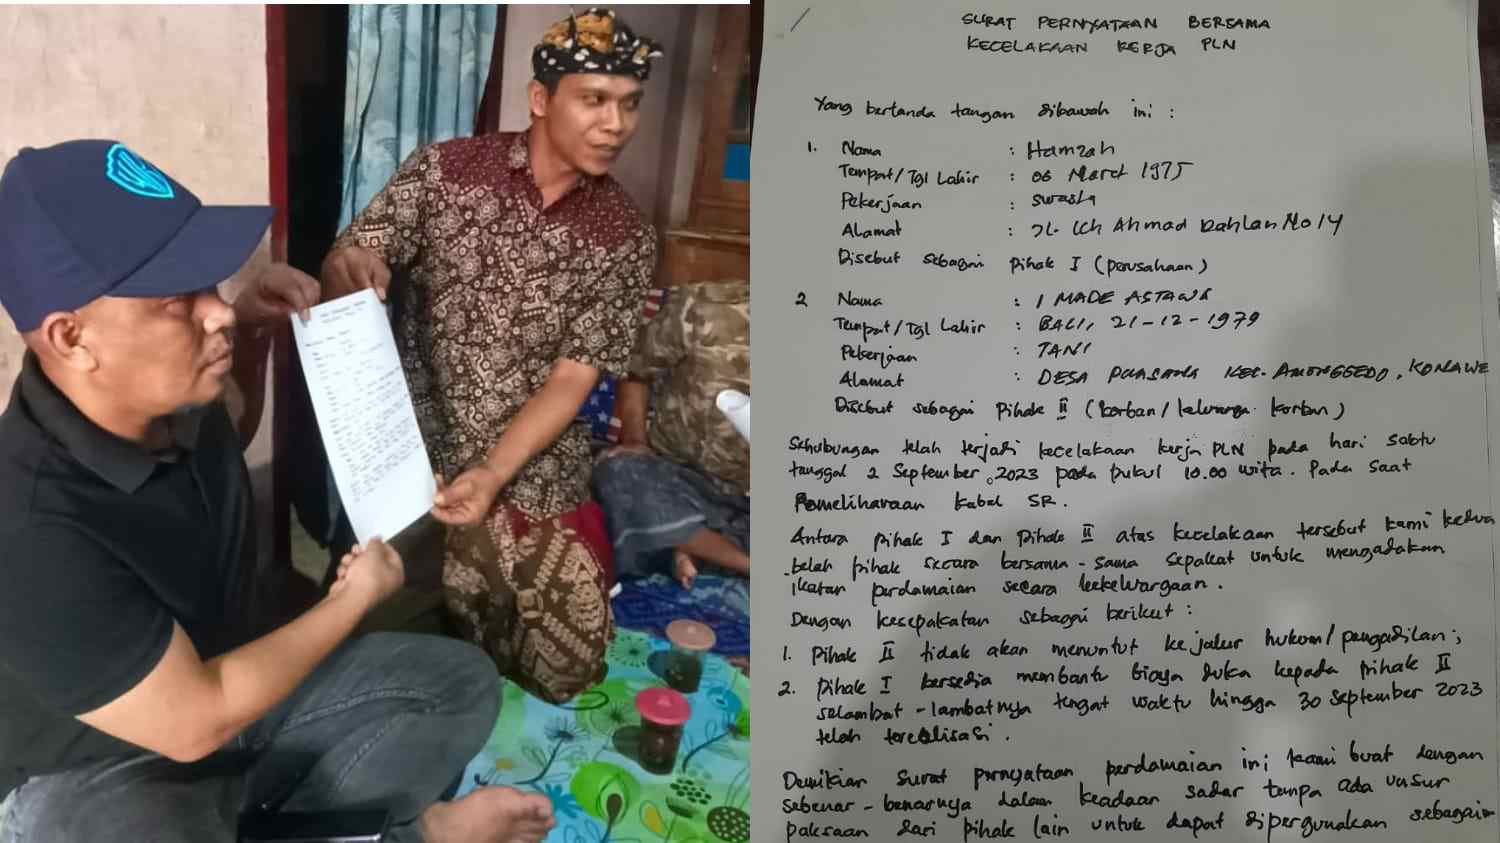 SURAT PERNYATAAN BERSAMA
KECELAKAAN KERJA PLN
Yang bertanda tangan dibawah ini :
1. Nama : Hamzah
Tempat/Tgl Lahir : 06 Maret 1975
Pekerjaan : swasta
Alamat : Jl. KH Ahmad Dahlan No 14
Disebut sebagai pihak I (perusahaan)
2 Nama : I MADE ASTAWA
Tempat/Tgl Lahir : BALI, 21-12-1979
Pekerjaan : TANI
Alamat : DESA PUASANA KEC. AMONGGEDO, KONAWE
Disebut sebagai Pihak II (korban/keluarga korban)
Sehubungan telah terjadi kecelakaan kerja PLN pada hari sabtu
tanggal 2 September 2023 pada pukul 10.00 wita. Pada saat
Pemeliharaan kabel SR.
Antara pihak I dan Pihak II atas kecelakaan tersebut kami kedua
belah pihak secara bersama-sama sepakat untuk mengadakan
ikatan perdamaian secara kekeluargaan.
Dengan kesepakatan sebagai berikut :
1. Pihak II tidak akan menuntut ke jalur hukum/pengadilan;
2. Pihak I bersedia membantu biaya duka kepada pihak II
selambat-lambatnya tengat waktu hingga 30 September 2023
telah terealisasi.
Demikian surat pernyataan perdamaian ini kami buat dengan
sebenar-benarnya dalam keadaan sadar tanpa ada unsur
paksaan dari pihak lain untuk dapat dipergunakan sebagaim